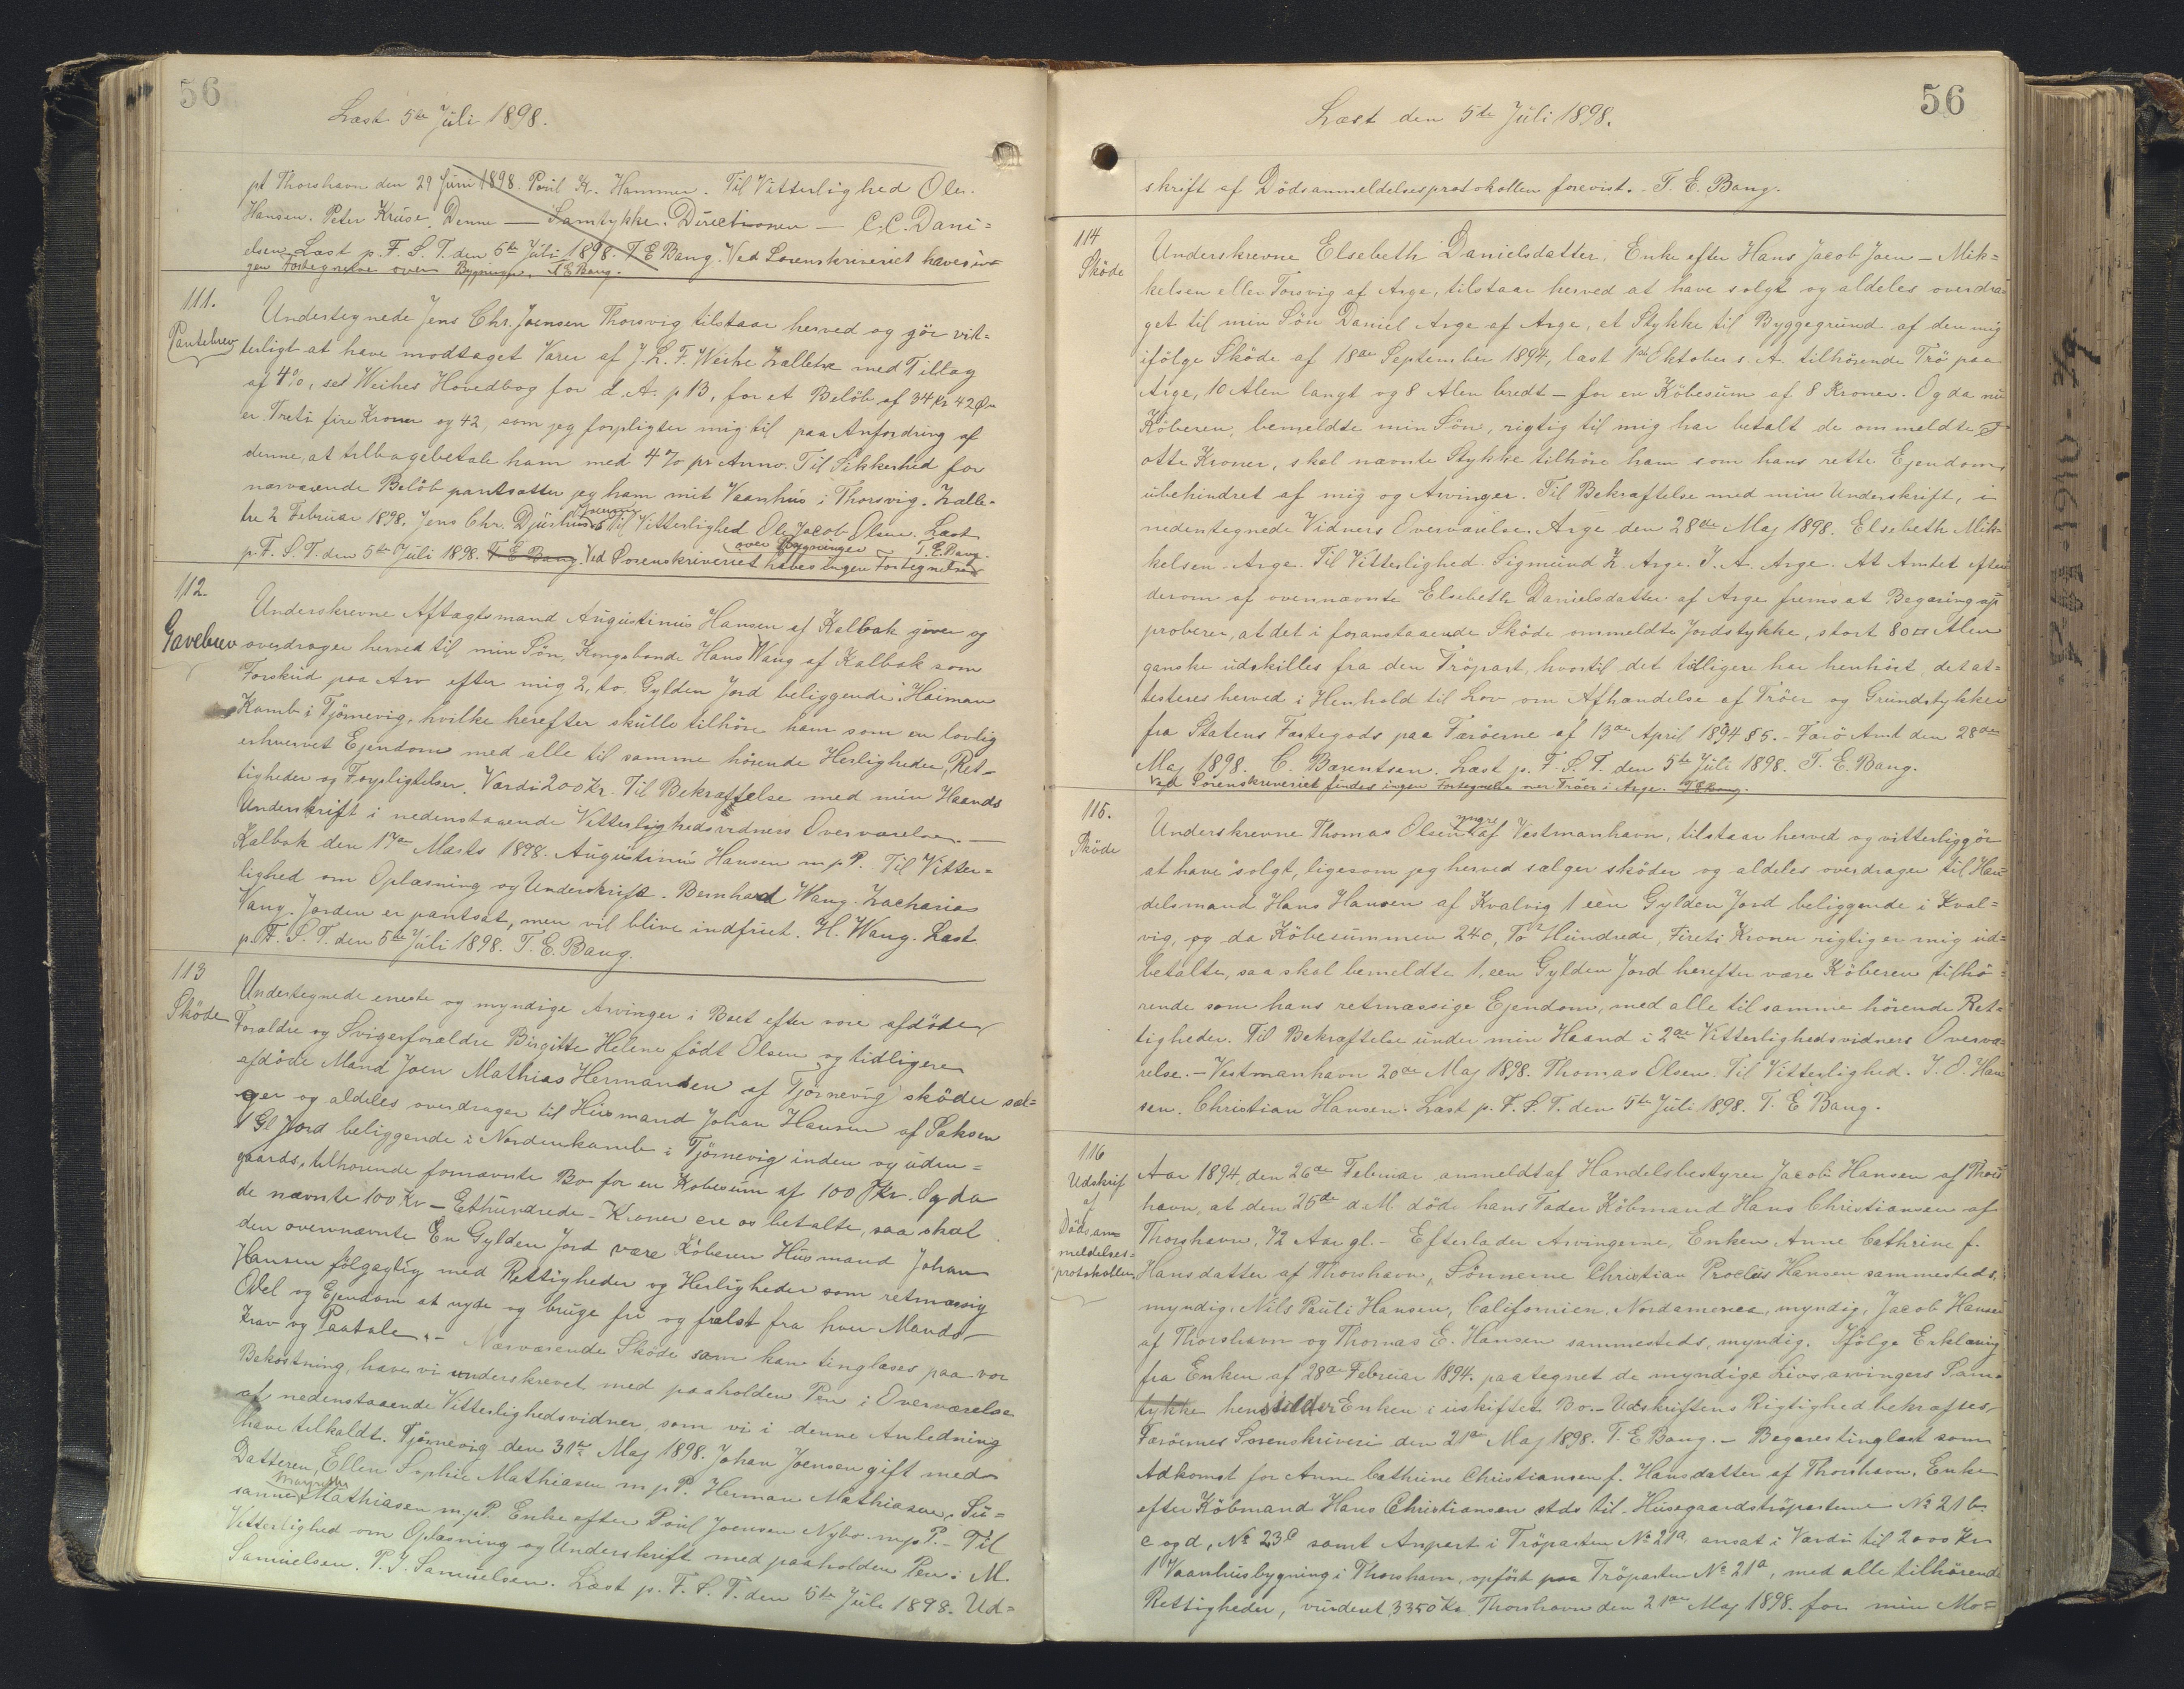 56
Læst 5te Juli 1898.
pt Thorshavn den 29 Juni 1898. Poul K. Hammer. Til Vitterlighed Ole
Hansen. Peter Kruse. Denne — Samtykke. Directionen — C. C. Dani=
elsen. Læst p. F. S. T. den 5te Juli 1898. T. E. Bang. Ved Sorenskriveriet haves in=
gen Fortegnelse over Bygninger. T. E. Bang.
111.
Pantebrev
Undertegnede Jens Chr. Joensen Thorsvig tilstaar herved og gör vit=
terligt at have modtaget Varer af J. L. F. Weihe med Tillæg
af 4%, se Weihes Hovedbog for d. A. p 13, for et Belöb af 34 Kr 42 Øre
er Treti fire Kroner og 42, som jeg forpligter mig til paa Anfordring af
denne, at tilbagebetale ham med 4% pr Anno. Til Sikkerhed for
nærværende Belöb pantsætter jeg ham mit Vaanhus i Thorsvig.
2 Februar 1898. Jens Chr. Djurhuus Joensen Til Vitterlighed Ole Jacob Olsen. Læst
p. F. S. T. den 5te Juli 1898. T. E. Bang. Ved Sorenskriveriet haves ingen Fortegnelse over Bygninger T. E. Bang.
112.
Gavebrev
Underskrevne Aftægtsmand Augustinus Hansen af Kalbak giver og
overdrager herved til min Sön, Kongsbonde Hans Wang af Kalbak som
Forskud paa Arv efter mig 2, to Gylden Jord beliggende i Heiman
Kamb i Tjörnevig, hvilke herefter skulle tilhöre ham som en lovlig
erhvervet Ejendom med alle til samme hörende Herligheder, Ret=
tigheder og Forpligtelser. Værdi 200 Kr. Til Bekræftelse med min Haands
Underskrift i nedenstaaende Vitterlighedsvidners Overværelse. —
Kalbak den 17de Marts 1898. Augustinus Hansen m. p. P. Til Vitter=
lighed om Oplæsning og Underskrift. Bernhard Wang. Zacharias
Wang. Jorden er pantsat, men vil blive indfriet. H. Wang. Læst
p. F. S. T. den 5te Juli 1898. T. E. Bang.
113
Sköde
Undertegnede eneste og myndige Arvinger i Boet efter vore afdöde
Forældre og Svigerforældre Birgitte Helene födt Olsen og tidligere
afdöde Mand Joen Mathias Hermansen af Tjörnevig sköder sæl=
ger og aldeles overdrager til Husmand Johan Hansen af Saksen
1 Gl Jord beliggende i Nordenkamb i Tjörnevig inden og uden=
gaards, tilhörende fornævnte Bo for en Köbesum af 100 Kr. Og da
de nævnte 100 Kr — Ethundrede — Kroner ere os betalte, saa skal
den ovennævnte En Gylden Jord være Köberen Husmand Johan
Hansen fölgagtig med Rettigheder og Herligheder som retmæssig
Odel og Ejendom at nyde og bruge fri og frelst fra hver Mands
Krav og Paatale. — Nærværende Sköde som kan tinglæses paa vor
Bekostning, have vi underskrevet med paaholden Pen i Overværelse
af nedenstaaende Vitterlighedsvidner, som vi i denne Anledning
have tilkaldt. Tjörnevig den 31te Maj 1898. Johan Joensen gift med
Datteren, Ellen Sophie Mathiasen m. p. P. Herman Mathiasen. Su=
sanne Margrethe Mathiasen m. p. P. Enke efter Poul Joensen Nybo. m. p. P. — Til
Vitterlighed om Oplæsning og Underskrift med paaholden Pen: M.
Samuelsen. P. J. Samuelsen. Læst p. F. S. T. den 5te Juli 1898. Ud=
56
Læst den 5te Juli 1898.
skrift af Dödsanmeldelsesprotokollen forevist. — T. E. Bang.
114
Sköde
Underskrevne Elsebeth Danielsdatter, Enke efter Hans Jacob Joen — Mik=
kelsen eller Torsvig af Arge, tilstaar herved at have solgt og aldeles overdra=
get til min Sön Daniel Arge af Arge, et Stykke til Byggegrund af den mig
ifölge Sköde af 18de September 1894, læst 1ste Oktober s. A. tilhörende Trö paa
Arge, 10 Alen langt og 8 Alen bredt — for en Köbesum af 8 Kroner. Og da nu
Köberen, bemeldte min Sön, rigtig til mig har betalt de ommeldte 8
otte Kroner, skal nævnte Stykke tilhöre ham som hans rette Ejendom,
ubehindret af mig og Arvinger. Til Bekræftelse med min Underskrift, i
nedentegnede Vidners Overværelse. Arge den 28de Maj 1898. Elsebeth Mik=
kelsen — Arge. Til Vitterlighed Sigmund Z. Arge. J. A. Arge. At Amtet efter
derom af ovennævnte Elsebeth Danielsdatter af Arge fremsat Begæring ap=
proberer, at det i foranstaaende Sköde ommeldte Jordstykke, stort 80 □ Alen
ganske udskilles fra den Tröpart, hvortil det tidligere har henhört, det at=
testeres herved i Henhold til Lov om Afhændelse af Tröer og Grundstykker
fra Statens Fæstegods paa Færöerne af 13de April 1894 § 5. — Færö Amt den 28de
Maj 1898. C. Bærentsen. Læst p. F. S. T. den 5te Juli 1898. T. E. Bang.
Ved Sorenskriveriet findes ingen Fortegnelse over Tröer i Arge. T. E. Bang.
115.
Sköde
Underskrevne Thomas Olsen yngre af Vestmanhavn, tilstaar herved og vitterliggör
at have solgt, ligesom jeg herved sælger sköder og aldeles overdrager til Han=
delsmand Hans Hansen af Kvalvig 1 een Gylden Jord beliggende i Kval=
vig, og da Köbesummen 240, To Hundrede, Fireti Kroner rigtig er mig ud=
betalte, saa skal bemeldte 1, een Gylden Jord herefter være Köberen tilhö=
rende som hans retmæssige Ejendom, med alle til samme hörende Ret=
tigheder. Til Bekræftelse under min Haand i 2de Vitterlighedsvidners Overvæ=
relse. — Vestmanhavn 20de Maj 1898. Thomas Olsen. Til Vitterlighed. J. O. Han
sen. Christian Hansen. Læst p. F. S. T. den 5te Juli 1898. T. E. Bang.
116
Udskrif
af
Dödsan=
meldelses=
protokollen
Aar 1894, den 26de Februar anmeldt af Handelsbestyrer Jacob Hansen af Thors
havn, at den 25de d. M. döde hans Fader Köbmand Hans Christiansen af
Thorshavn, 72 Aar gl. — Efterlader Arvingerne, Enken Anne Cathrine f.
Hansdatter af Thorshavn, Sönnerne Christian Proelius Hansen sammesteds,
myndig, Nils Pauli Hansen, Californien, Nordamerica, myndig, Jacob Hansen
af Thorshavn og Thomas E. Hansen sammesteds, myndig. Ifölge Erklæring
fra Enken af 28de Februar 1894. paategnet de myndige Livsarvingers Sam=
tykke hensidder Enken i uskiftet Bo. — Udskriftens Rigtighed bekræftes,
Færöernes Sorenskriveri den 21de Maj 1898. T. E. Bang. — Begæres tinglæst som
Adkomst for Anne Cathrine Christiansen f. Hansdatter af Thorshavn, Enke
efter Köbmand Hans Christiansen stds til Husegaardströparterne № 21 b.
c og d, № 23 c samt Anpart i Tröparten № 21a, ansat i Værdi til 2000 Kr
1 Vaanhusbygning i Thorshavn, opfört paa Tröparten № 21a, med alle tilhörende
Rettigheder, vurderet 3350 Kr. Thorshavn den 21de Maj 1898. for min Mo=